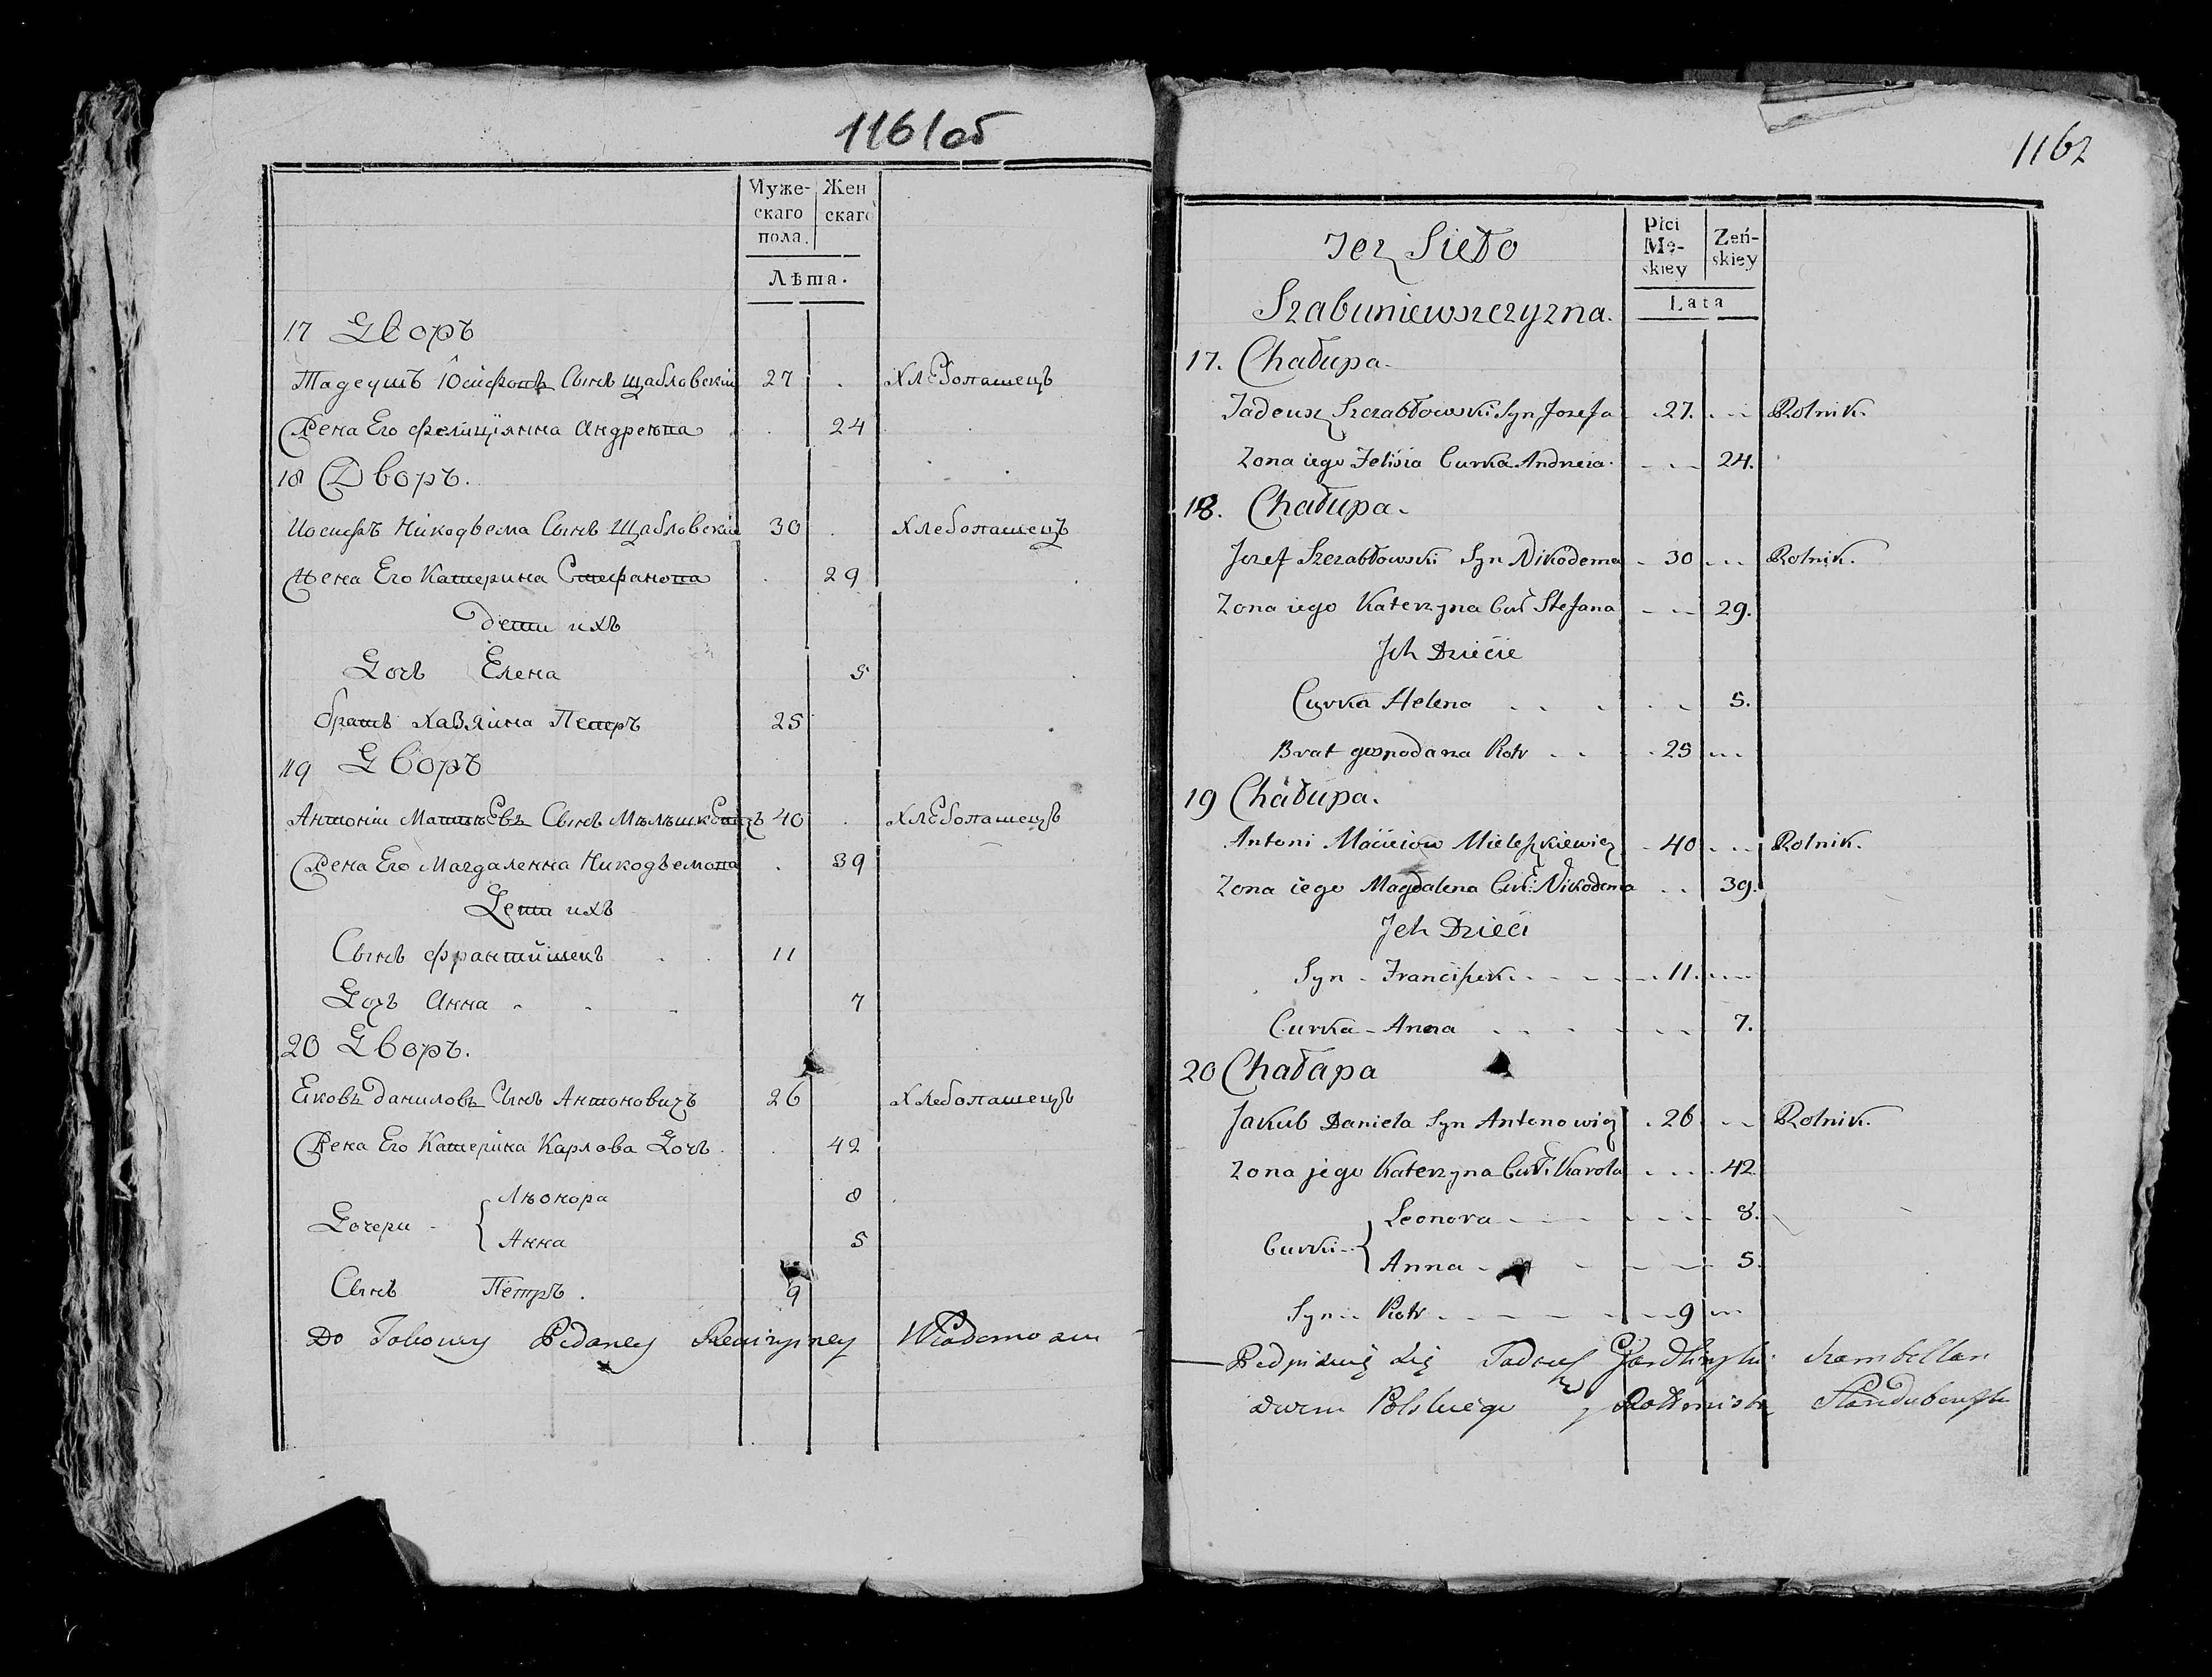 1161об
Муже- Жен
скаго скаго
пола.
Лѣта.
17 Дворъ
Тадеушъ Юсифовъ Сынъ Щабловскій 27 . Хлебопашецъ
Жена Его Фелиціянна Андреева . 24
18 Дворъ.
Иосифъ Никодѣма Сынъ Щабловскій 30 . Хлебопашецъ
Жена Его Катерина Стефанова . 29
Дети ихъ
Дочь Елена 5
братъ Хазяина Петръ 25
19 Дворъ
Антоній Матѣевъ Сынъ 40 . Хлебопашецъ
Жена Его Магдаленна Никодѣмова . 39
Дети ихъ
Сынъ Франтишекъ . . 11
Дочь Анна - - - 7
20 Дворъ.
Яковъ Даниловъ Сынъ Антоновичъ 26 Хлебопашецъ
Жена Его Катерина Карлова Дочь . . 42
Лѣонора 8
Дочери - {
Анна 5
Сынъ Петръ . 9
Do Takowey Podaney Rewizyiney Wiadomosci
1162
Płci Zeń-
Mę- skiey
skiey
Lata
Jez Sieło
Szabuniewszczyzna.
17. Chałupa.
Tadeusz Szczabłowski Syn Jozefa 27. Rolnik.
Zona iego Felisia Curka Andrzeia. 24.
18. Chałupa.
Jozef Szczabłowski Syn Nikodema 30 Rolnik.
Zona iego Katerzyna Cur: Stefana 29.
Jch Dziecie
Curka Helena 5.
Brat gospodarza Piotr 25
19 Chałupa.
Antoni Macieiow Mieleszkiewicz 40 Rolnik.
Zona iego Magdalena Cur: Nikodema 39.
Jch Dzieci
Syn - Franciszek 11.
Curka - Anna 7.
20 Chałapa
Jakub Daniela Syn Antonowicz 26 Rolnik.
Zona jego Katerzyna Cur: Karola 42
Leonora 8.
Curki - {
Anna 5.
Syn - Piotr 9
Podpisuię się Tadeusz Szambellan
dworu Polskiego y Rotmistrz